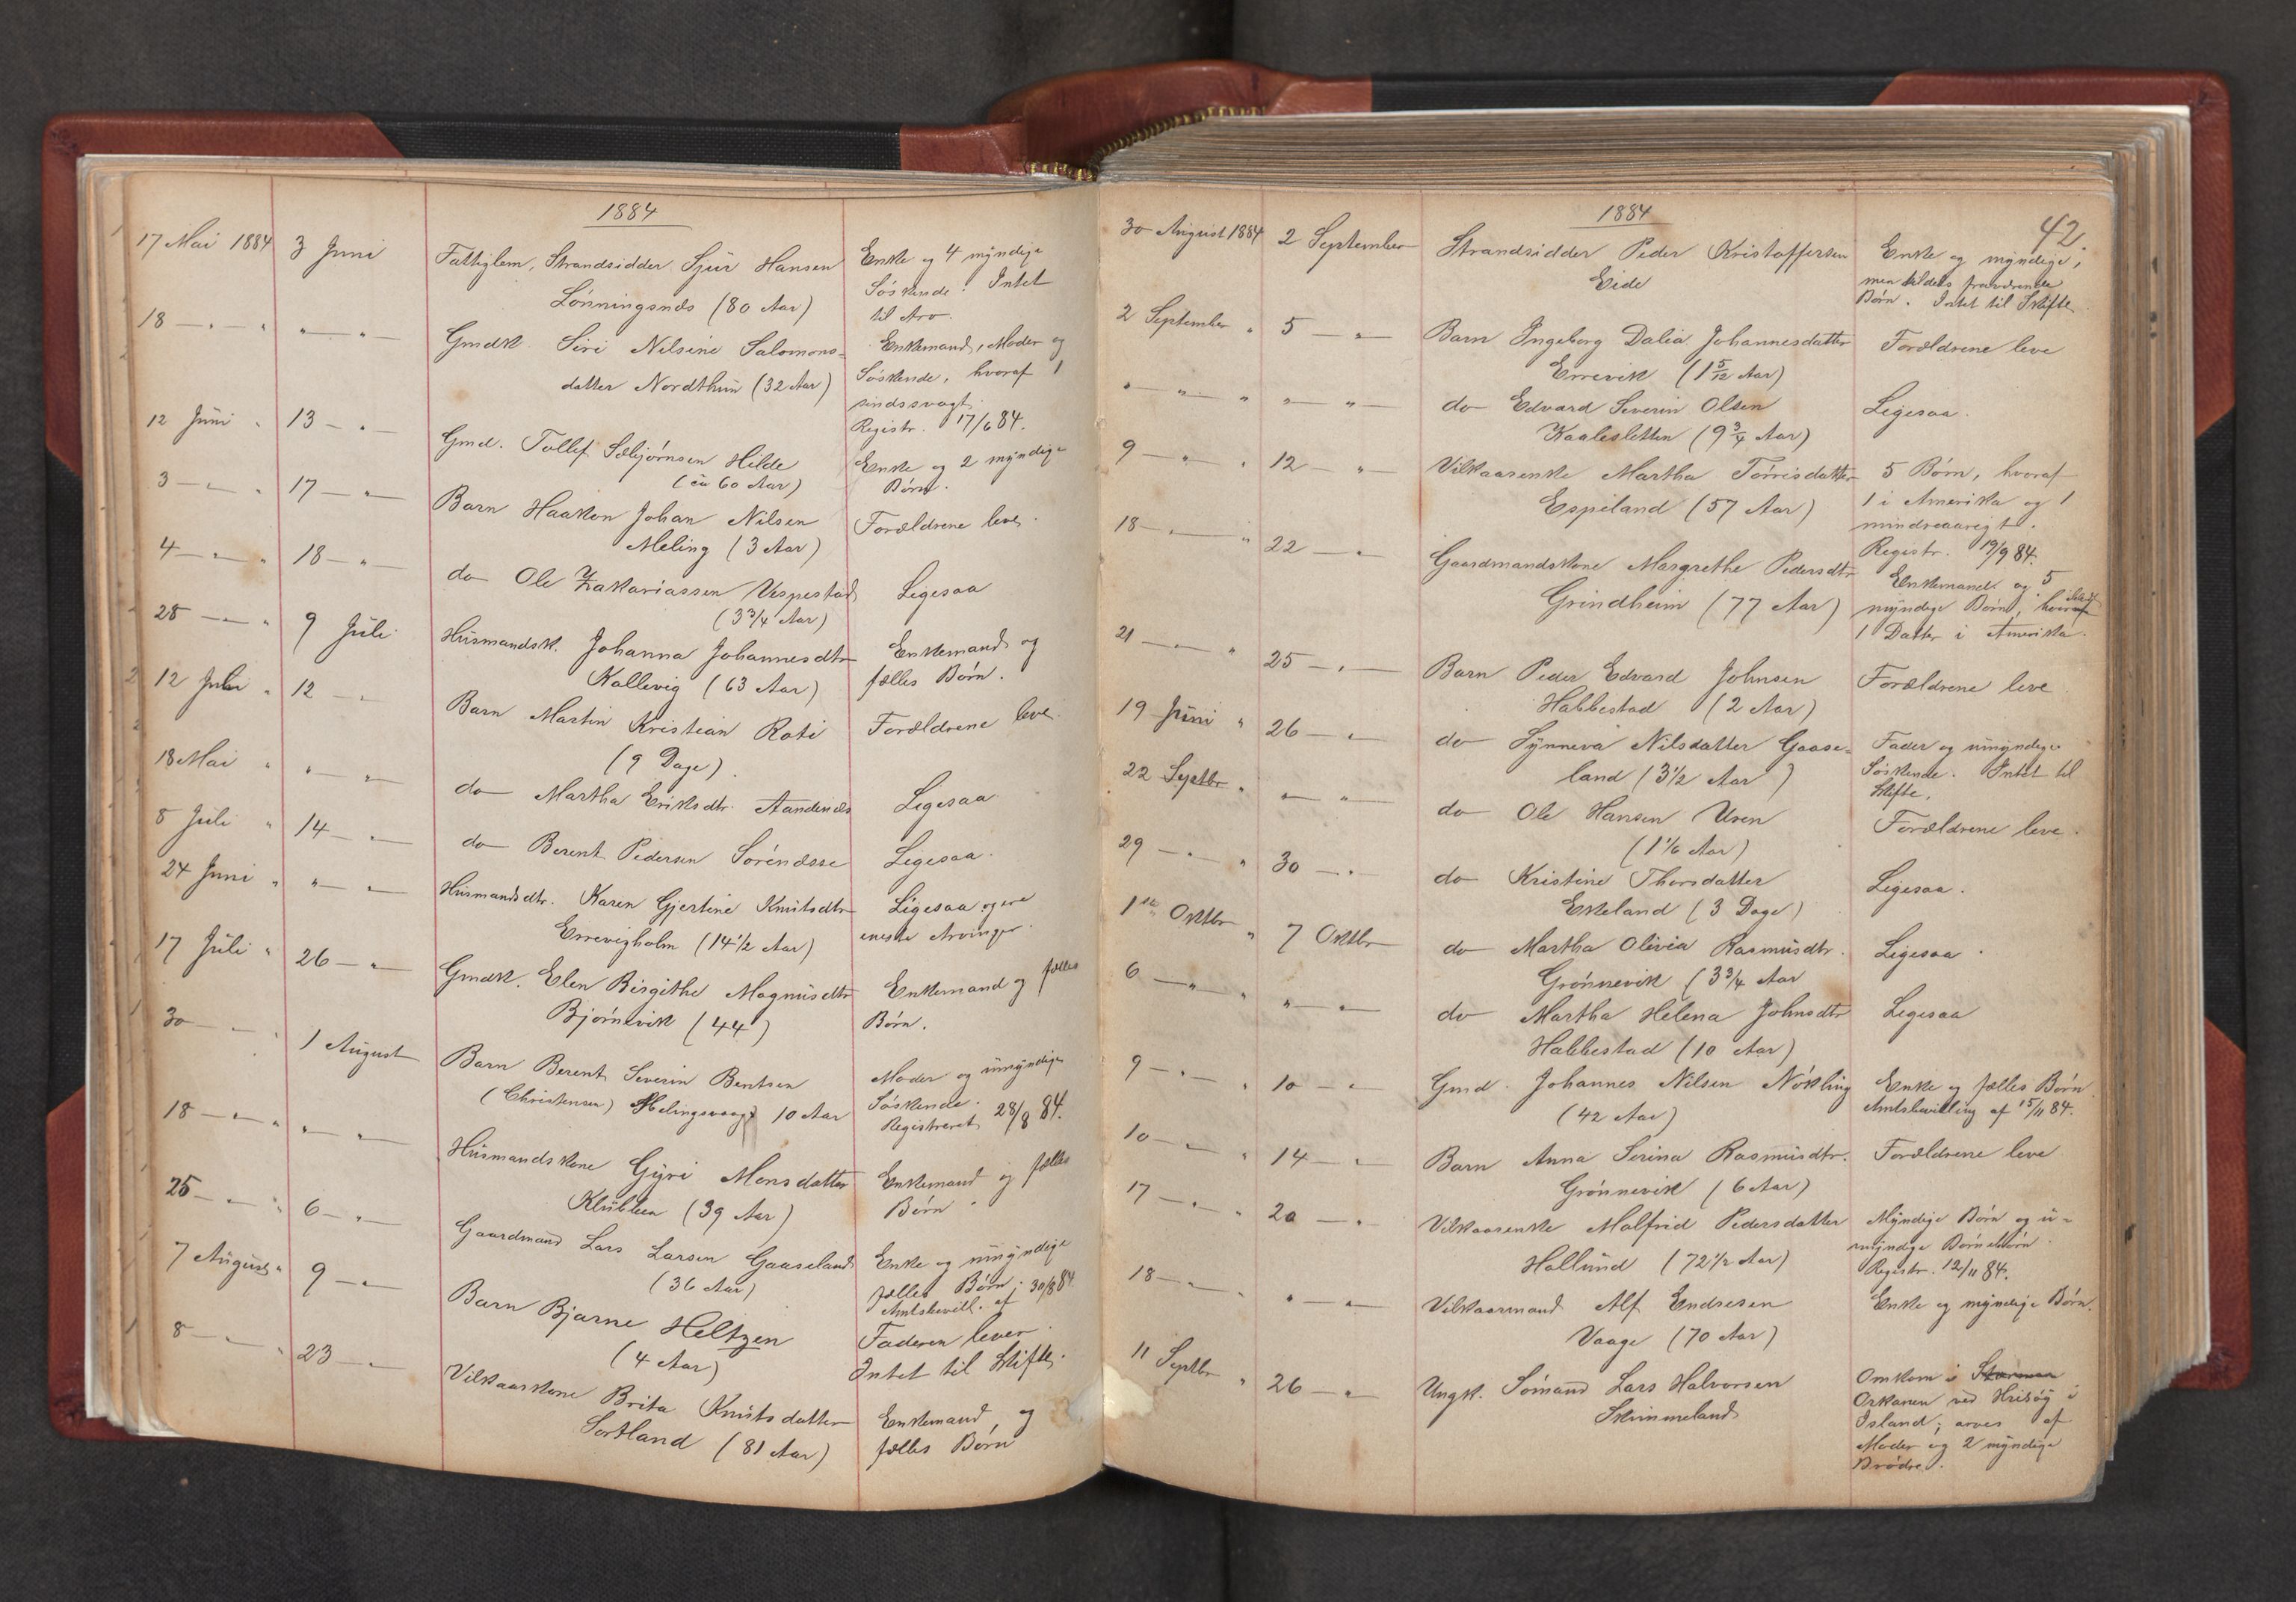 1884
17 Mai 1884 3 Juni Fattiglem, Strandsidder Sjur Hansen Enke og 4 myndige
Lønningsnæs (80 Aar) Söskende. Intet
til Arv.
18 — " " " — " Gmdk. Siri Nilsine Salomons- Enkemand, Moder og
datter Nordthun (32 Aar) Söskende, hvoraf 1
sindssvagt.
Registr. 17/6 84.
12 Juni " 13 — " — Gmd. Tollef Sæbjørnsen Hilde Enke og 2 myndige
(ca 60 Aar) Børn.
3 — " — " 17 — " — Barn Haakon Johan Nilsen Forældrene leve.
Meling (3 Aar)
4 — " — " 18 — " — do Ole Zakariassen Vespestad Ligesaa
(3 3/4 Aar)
28 — " — " 9 Juli Husmandsk. Johanna Johannesdtr Enkemand og
Kallevig (63 Aar) fælles Børn.
12 Juli " 12 — " Barn Martin Kristian Roti Forældrene leve.
(9 Dage)
18 Mai " " — " — do Martha Eriksdtr. Aandenæs Ligesaa
8 Juli " 14 — " — do Berent Pedersen Ligesaa.
24 Juni " " — " — Husmandsdtr. Karen Gjertine Knutsdtr Ligesaa og ere
Errevigholm (14 1/2 Aar) eneste Arvinger.
17 Juli " 26 — " — Gmdk. Elen Birgithe Magnusdtr Enkemand og fælles
Bjørnevik (44) Børn.
30 — " — " 1 August Barn Berent Severin Bentsen Moder og umyndige
(Christensen) Melingsvaag 10 Aar Söskende.
Registreret 28/8 84.
18 — " — " " — " — Husmandskone Gyri Monsdatter Enkemand og fælles
Klubben (39 Aar) Børn
25 — " — " 6 — " — Gaardmand Lars Larsen Gaaseland Enke og umyndige
(36 Aar) fælles Børn; 30/8 84.
Amtsbevill. af
7 August " 9 — " — Barn Bjarne Heltzen Faderen lever.
(4 Aar) Intet til Skifte.
8 — " — " 23 — " — Vilkaarskone Brita Knutsdatter Enkemand og
Sortland (81 Aar) fælles Børn
1884
42.
30 August 1884 2 September Strandsidder Peder Kristoffersen Enke og myndige,
Eide men tildels fraværende
Børn. Intet til Skifte
2 September " 5 — " — Barn Ingeborg Dalia Johannesdatter Forældrene leve
Errevik (1 5/12 Aar)
" — " — " " — " — do Edvard Severin Olsen Ligesaa.
Kaalesletten (9 3/4 Aar)
9 — " — " 12 — " — Vilkaarsenke Martha Torrisdatter 5 Børn, hvoraf
Espeland (57 Aar) 1 i Amerika og 1
mindreaarigt.
Registr. 19/9 84.
18 — " — " 22 — " — Gaardmandskone Margrethe Pedersdtr Enkemand og 5
Grindheim (77 Aar) myndige Børn, hvoraf
1 Datter i Amerika.
21 — " — " 25 — " — Barn Peder Edvard Johnsen Forældrene leve.
Habbestad (2 Aar)
19 Juni " 26 — " — do Synneva Nilsdatter Gaase- Fader og umyndige
land (3 1/2 Aar) Söskende. Intet til
Skifte.
22 Septbr " " — " — do Ole Hansen Uren Forældrene leve.
(1 1/6 Aar)
29 — " — " 30 — " — do Kristine Thorsdatter Ligesaa.
Eskeland (3 Dage)
1ste Oktbr " 7 Oktbr do Martha Olivia Rasmusdtr. Ligesaa.
Grønnevik (3 3/4 Aar
6 — " — " " — " — do Martha Helena Johnsdtr Ligesaa
Habbestad (10 Aar)
9 — " — " 10 — " — Gmd. Johannes Nilsen Nökling Enke og fælles Børn.
(42 Aar) Amtsbevilling af 15/11 84.
10 — " — " 14 — " — Barn Anna Serina Rasmusdtr. Forældrene leve
Grønnevik (6 Aar)
17 — " — " 20 — " — Vilkaarsenke Malfrid Pedersdatter Myndige Børn og u-
Hallund (72 1/2 Aar) myndige Børnebørn.
Registr. 12/11 84.
18 — " — " " — " — Vilkaarmand Alf Endresen Enke og myndige Børn.
Vaage (70 Aar)
11 Septbr " 26 — " — Ungk. Sömand Lars Halvorsen Omkom i
Skimmeland Orkanen ved Hrisöy i
Island; arves af
Moder og 2 myndige
Brödre.